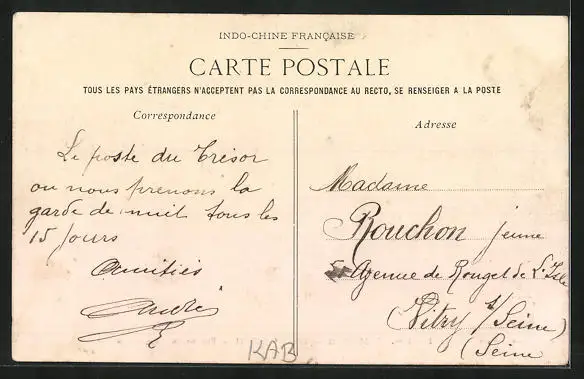 INDO-CHINE FRANÇAISE
CARTE POSTALE
TOUS LES PAYS ÉTRANGERS N'ACCEPTENT PAS LA CORRESPONDANCE AU RECTO, SE RENSEIGER A LA POSTE
Correspondance
Le poste du Trésor
ou nous prenons la
garde de nuit tous les
15 jours
Amitiés
André
Adresse
Madame
Rouchon jeune
Avenue de Rouget de L'Isle
Vitry s/Seine)
(Seine
KAB